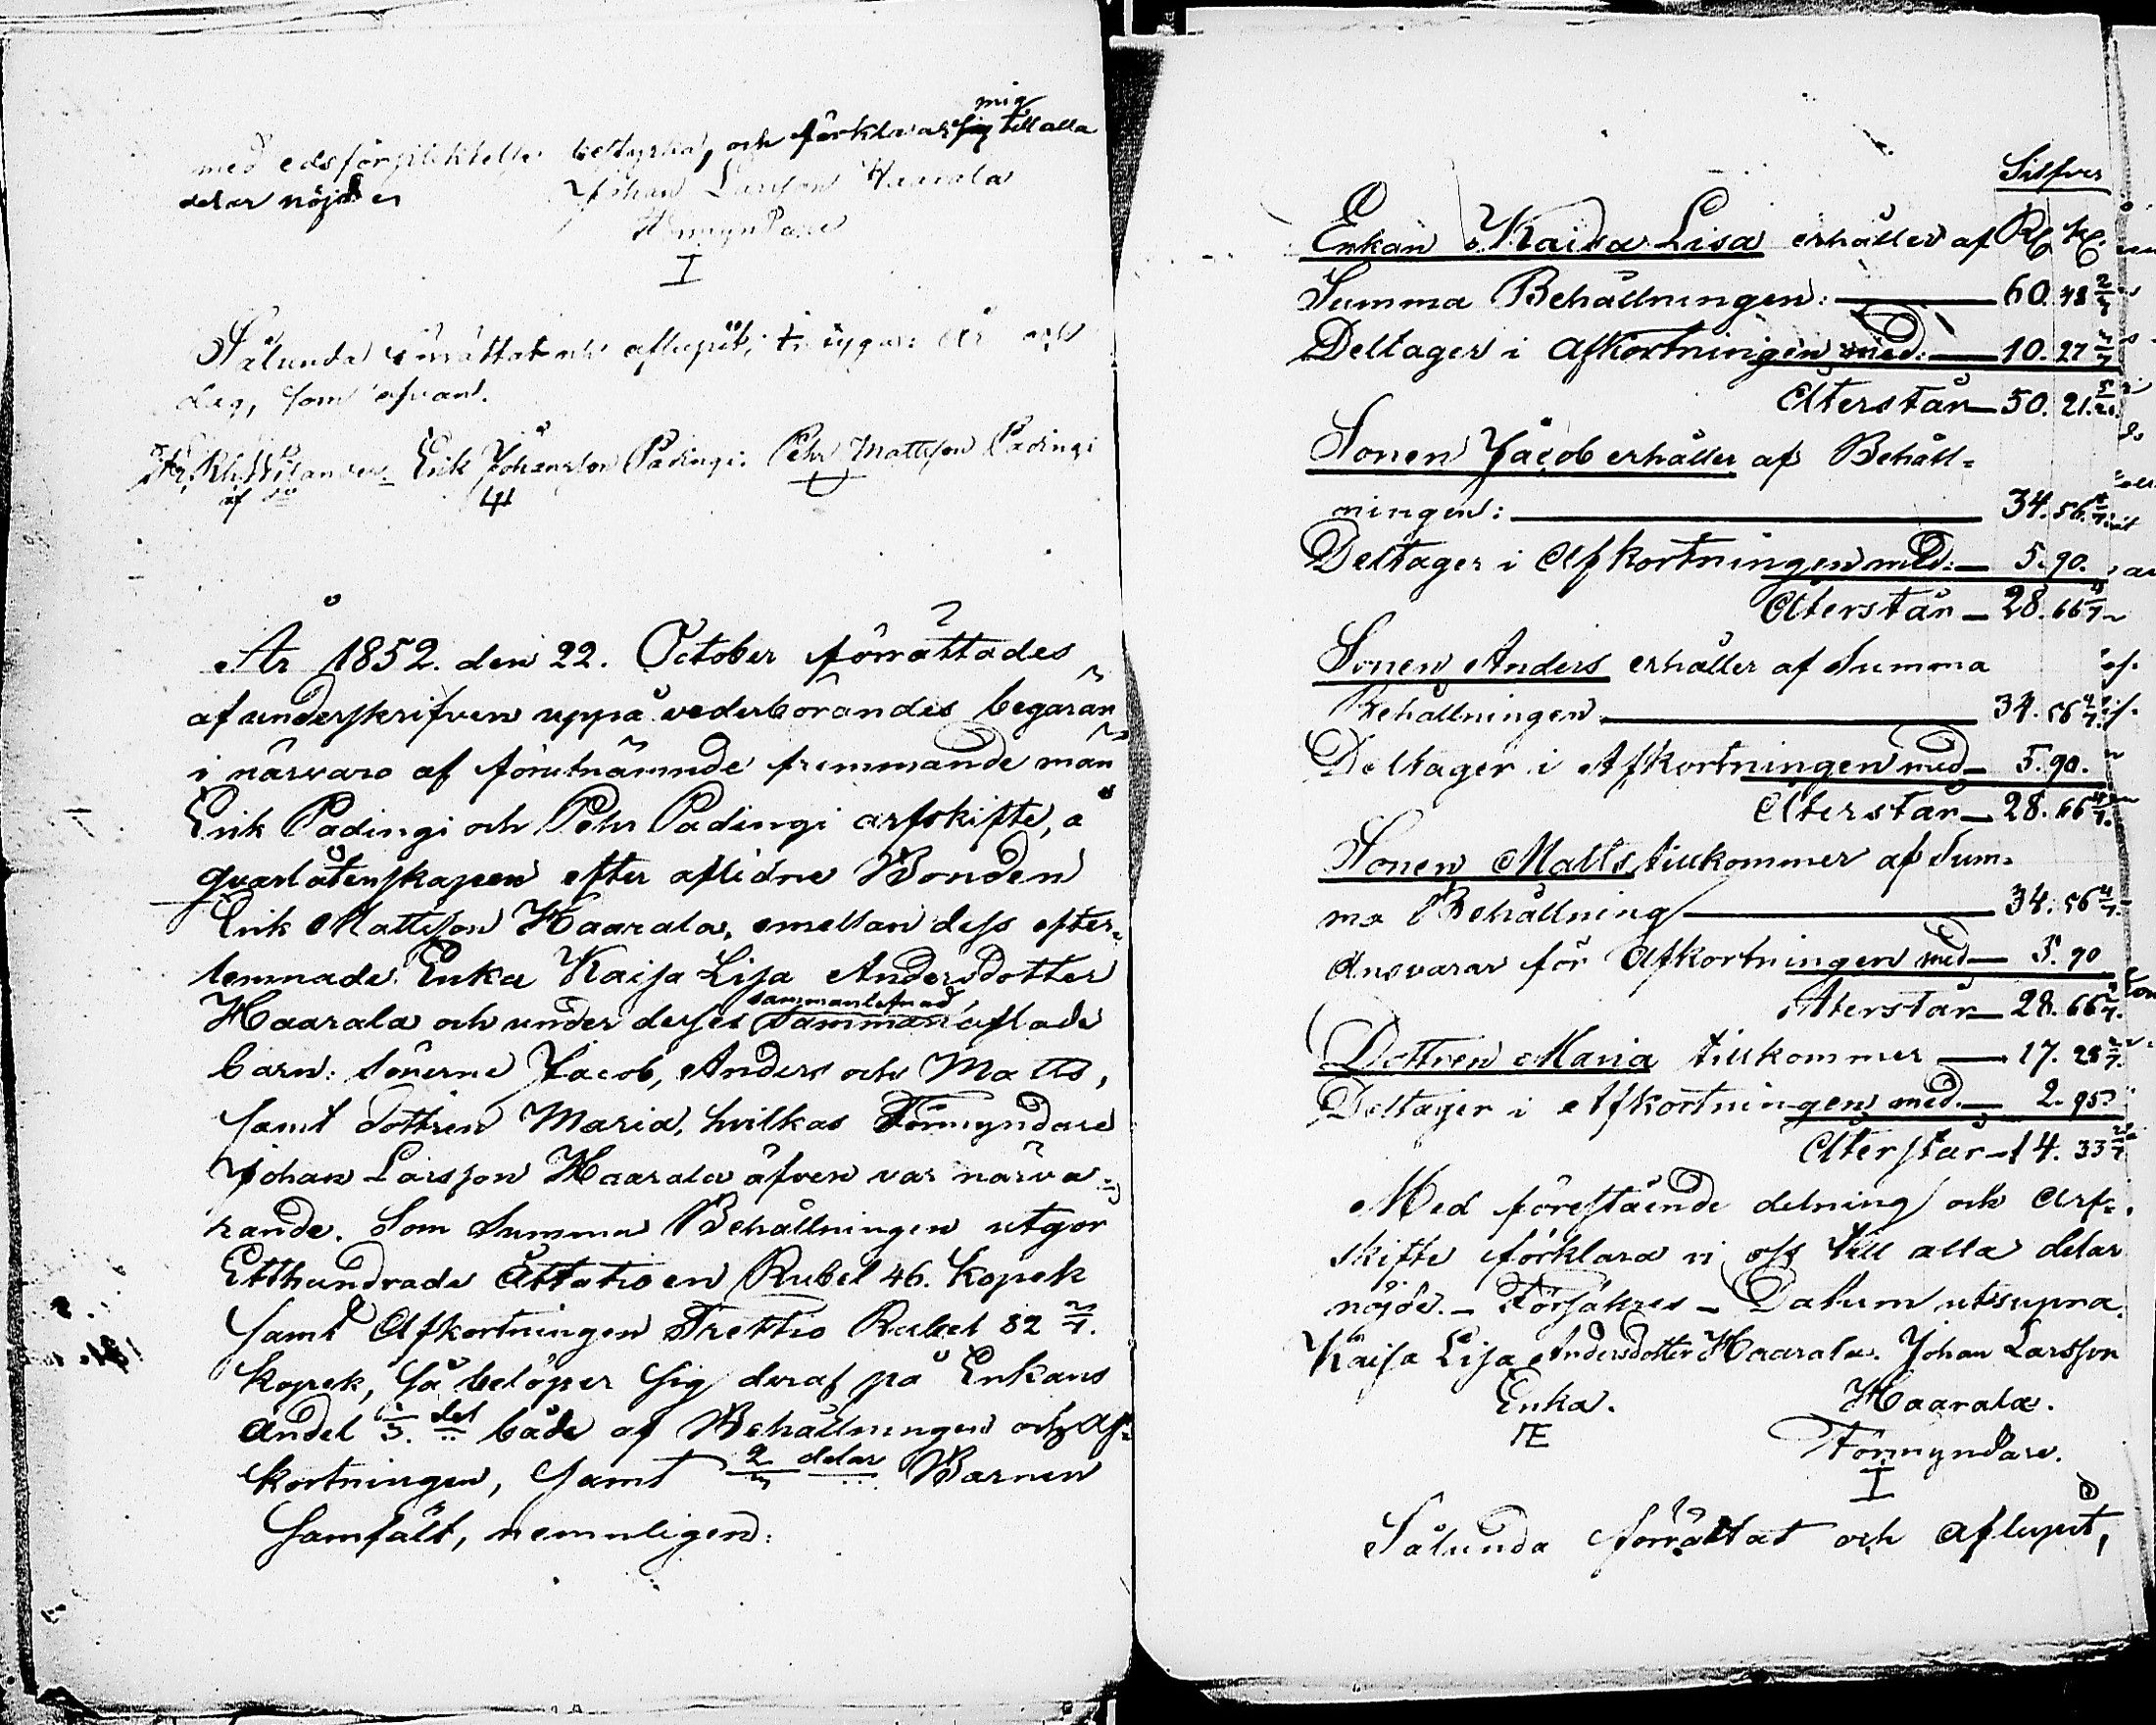 mig
med edsförpliktelse bestyrka, och förklarar sig till alla
delar nöjder Johan Larsson Haarala
Förmyndare
I
Sålunda förrättat och aflupit, betygar: år och
dag, som ofvan.
Erik Johansson Padingi. Pehr Mattsson Padingi
År 1852. den 22. October förrättades
af underskrifven uppå vederbörandes begäran
i närvaro af förutnämnde fremmande män
Erik Padingi och Pehr Padingi arfskifte, å
qvarlåtenskapen efter aflidne Bonden
Erik Mattsson Haarala, emellan dess efter-
lemnade Enka Kaisa Lisa Andersdotter
sammanlefnad
Haarala och under desses samman aflade
barn: sönerne Jacob, Anders och Matts,
samt dottren Maria, hvilkas Förmyndare
Johan Larsson Haarala äfven var närva-
rande. Som Summa Behållningen utgör
Etthundrade Åttatio en Rubel 46. Kopek
samt Afkortningen Trettio Rubel 82 2/7.
Kopek, så belöper sig deraf på Enkans
andel 1/3. del både af Behållningen och Af-
kortningen, samt 2/3 delar Barnen
samfält, nemnligen:
Silfver
Enkan Kaisa Lisa erhåller af R K.
Summa Behållningen: 60. 48 2/3
Deltager i Afkortningen med: 10. 27
Återstår 50. 21.
Sonen Jacob erhåller af Behåll-
ningen: 34. 56. 4/7.
Deltager i Afkortningen med: 5. 90.
Återstår 28. 66 4/7
Sonen Anders erhåller af Summa
Behållningen 34. 56 4/7.
Deltager i Afkortningen med 5. 90.
Återstår 28. 66 4/7.
Sonen Matts, tillkommer af Sum-
ma Behållning 34. 56 4/7.
Ansvarar för Afkortningen med 5. 90
Återstår 28. 66 4/7.
Dottren Maria tillkommer 17. 28 2/7.
Deltager i Afkortningen med. 2. 95.
Återstår 14. 33 2/7
Med förestående delning och Arf-
skifte förklara vi oss till alla delar
nöjde. Försäkres Datum utsupra.
Kaisa Lisa Andersdotter Haarala. Johan Larsson
Enka. Haarala.
Förmyndare.
I
Sålunda förrättat och aflupit,